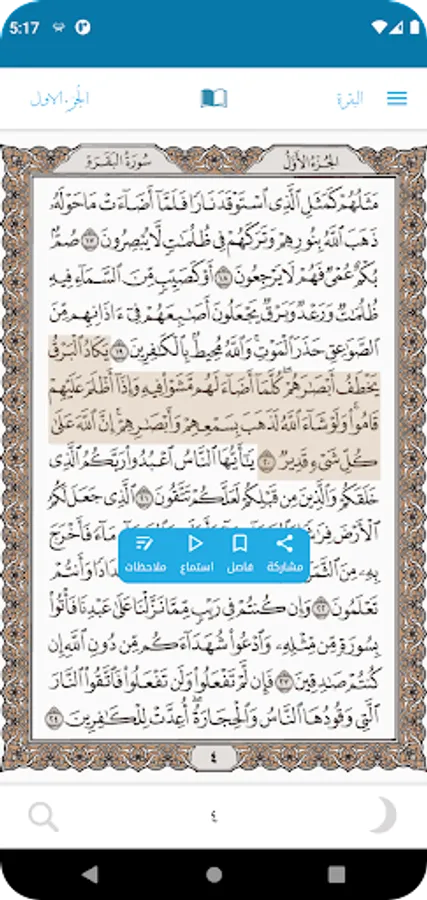 5:17
البقرة الجزء الاول
الجُزْءُ الأَوَّلُ سُورَةُ البَقَرَةِ
مَثَلُهُمْ كَمَثَلِ الَّذِي اسْتَوْقَدَ نَارًا فَلَمَّا أَضَاءَتْ مَا حَوْلَهُ
ذَهَبَ اللَّهُ بِنُورِهِمْ وَتَرَكَهُمْ فِي ظُلُمَاتٍ لَّا يُبْصِرُونَ ١٧ صُمٌّ
بُكْمٌ عُمْيٌ فَهُمْ لَا يَرْجِعُونَ ١٨ أَوْ كَصَيِّبٍ مِّنَ السَّمَاءِ فِيهِ
ظُلُمَاتٌ وَرَعْدٌ وَبَرْقٌ يَجْعَلُونَ أَصَابِعَهُمْ فِي ءَاذَانِهِم مِّنَ
الصَّوَاعِقِ حَذَرَ الْمَوْتِ وَاللَّهُ مُحِيطٌ بِالْكَافِرِينَ ١٩ يَكَادُ الْبَرْقُ
يَخْطَفُ أَبْصَارَهُمْ كُلَّمَا أَضَاءَ لَهُم مَّشَوْا فِيهِ وَإِذَا أَظْلَمَ عَلَيْهِمْ
قَامُوا وَلَوْ شَاءَ اللَّهُ لَذَهَبَ بِسَمْعِهِمْ وَأَبْصَارِهِمْ إِنَّ اللَّهَ عَلَىٰ
كُلِّ شَيْءٍ قَدِيرٌ ٢٠ يَاأَيُّهَا النَّاسُ اعْبُدُوا رَبَّكُمُ الَّذِي
خَلَقَكُمْ وَالَّذِينَ مِن قَبْلِكُمْ لَعَلَّكُمْ تَتَّقُونَ ٢١ الَّذِي جَعَلَ لَكُمُ
الْأَرْضَ مَاءً فَأَخْرَجَ
مشاركة فاصل استماع ملاحظات
بِهِ مِنَ وَأَنتُمْ
تَعْلَمُونَ ٢٢ وَإِن كُنتُمْ فِي رَيْبٍ مِّمَّا نَزَّلْنَا عَلَىٰ عَبْدِنَا فَأْتُوا
بِسُورَةٍ مِّن مِّثْلِهِ وَادْعُوا شُهَدَاءَكُم مِّن دُونِ اللَّهِ إِن
كُنتُمْ صَادِقِينَ ٢٣ فَإِن لَّمْ تَفْعَلُوا وَلَن تَفْعَلُوا فَاتَّقُوا النَّارَ
الَّتِي وَقُودُهَا النَّاسُ وَالْحِجَارَةُ أُعِدَّتْ لِلْكَافِرِينَ ٢٤
٤
٤